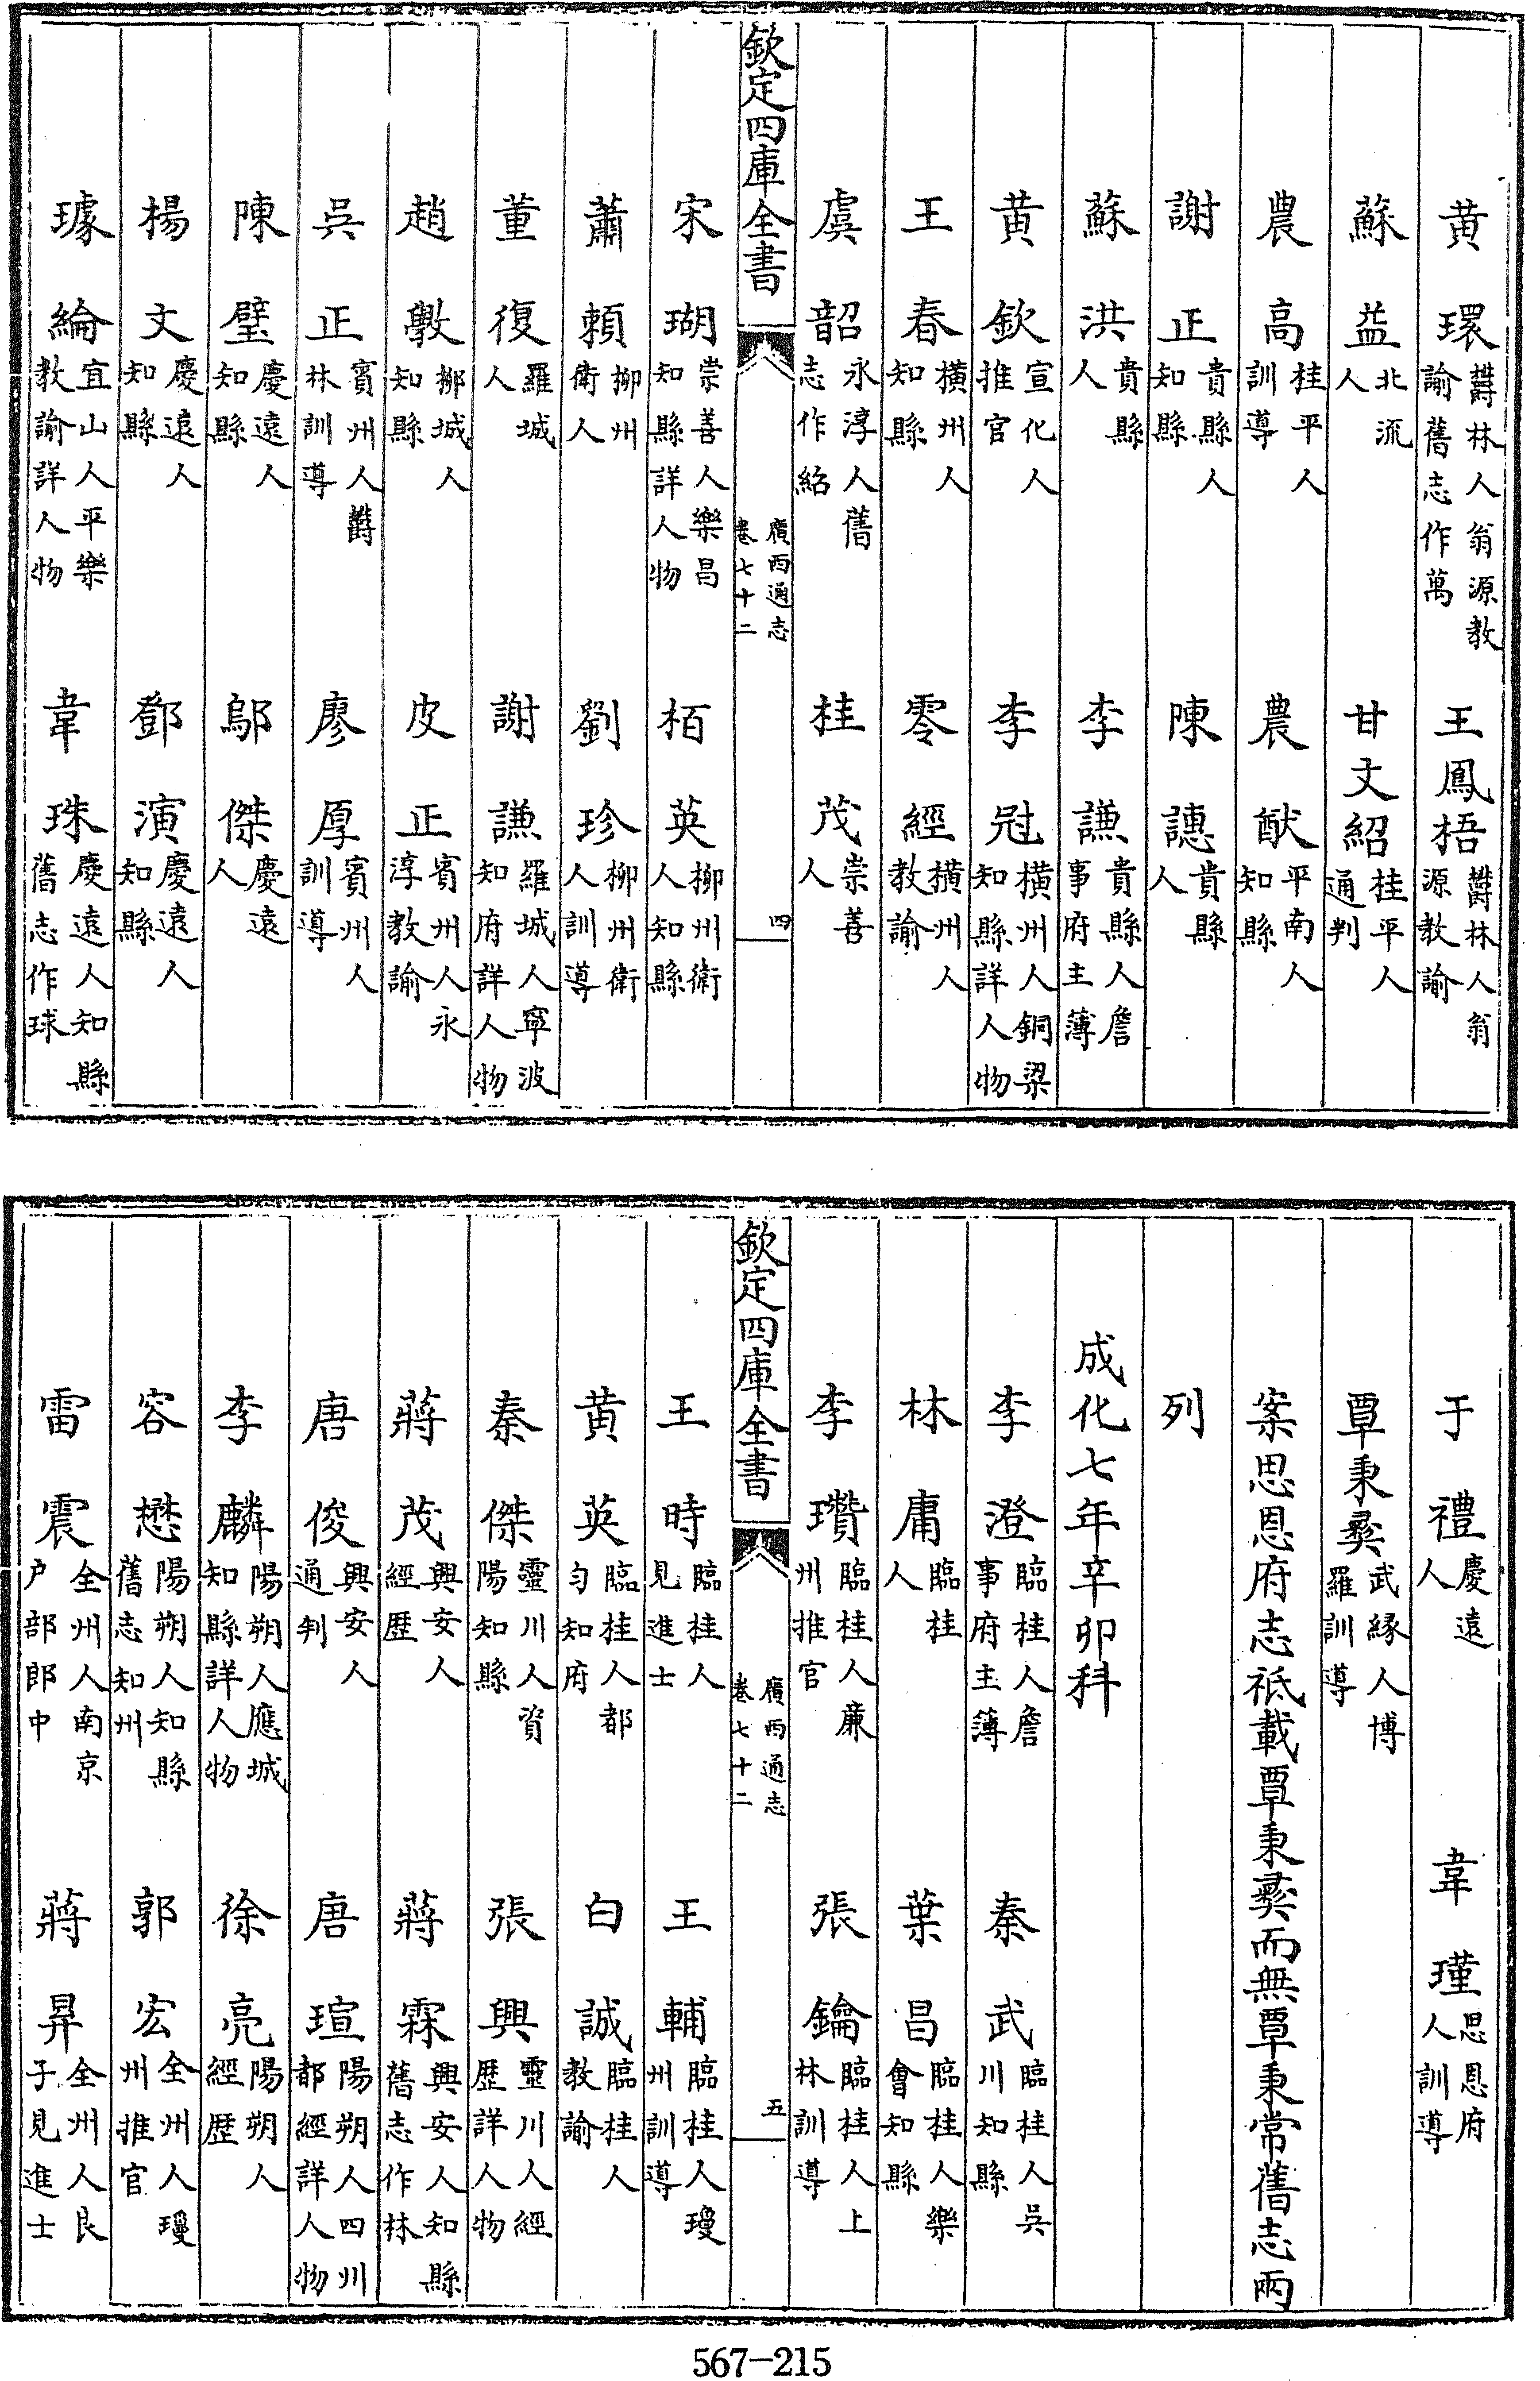 黄環欝林人翁源教諭舊志作萬　王鳳梧欝林人翁源教諭
蘇益北流人　甘文紹桂平人通判
農高桂平人訓導　農猷平南人知縣
謝正貴縣人知縣　陳譓貴縣人
蘇洪貴縣人　李謙貴縣人詹事府主薄
黄欽宣化人推官　李冠橫州人銅梁知縣詳人物
王春橫州人知縣　零經橫州人教諭
虞韶永淳人舊志作紹　桂茂崇善人
欽定四庫全書　廣西通志卷七十二　四
宋瑚崇善人樂昌知縣詳人物　栢英柳州衛人知縣
蕭頼柳州衛人　劉珍柳州衛人訓導
董復羅城人　謝謙羅城人寧波知府詳人物
趙斆柳城人知縣　皮正賓州人永淳教諭
呉正賓州人欝林訓導　廖厚賓州人訓導
陳璧慶遠人知縣　鄔傑慶遠人
楊文慶遠人知縣　鄧演慶遠人知縣
璩綸宜山人平樂教諭詳人物　韋珠慶遠人知縣舊志作球
于禮慶遠人　韋瑾思恩府人訓導
覃秉彛武縁人博羅訓導
案思恩府志祗載覃秉彛而無覃秉常舊志兩
列
成化七年辛卯科
李澄臨桂人詹事府主薄　秦武臨桂人呉川知縣
林庸臨桂人　葉昌臨桂人樂會知縣
李瓚臨桂人廉州推官　張鑰臨桂人上林訓導
欽定四庫全書　廣西通志卷七十二　五
王時臨桂人見進士　王輔臨桂人瓊州訓導
黄英臨桂人都匀知府　白誠臨桂人教諭
秦傑靈川人資陽知縣　張興靈川人經歴詳人物
蔣茂興安人經歴　蔣霖興安人知縣舊志作林
唐俊興安人通判　唐瑄陽朔人四川都經詳人物
李麟陽朔人應城知縣詳人物　徐亮陽朔人經歴
容懋陽朔人知縣舊志知州　郭宏全州人瓊州推官
雷震全州人南京户部郎中　蔣昇全州人良子見進士
567-215